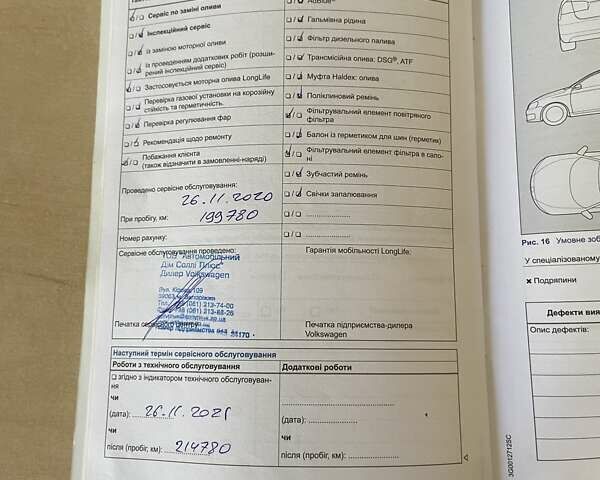 ☑ / ☐ Сервіс по заміні оливи
☐ / ☑ Інспекційний сервіс
☐ / ☑ із заміною моторної оливи
☐ / ☑ із проведенням додаткових робіт (розши-
рений інспекційний сервіс)
☑ / ☐ Застосовується моторна олива LongLife
☐ / ☑ Перевірка газової установки на корозійну
стійкість та герметичність.
☑ / ☐ Перевірка регулювання фар
☐ / ☑ Рекомендація щодо ремонту
☑ / ☐ Побажання клієнта
(також відзначити в замовленні-наряді)
Проведено сервісне обслуговування:
26.11.2020
При пробігу, км: 199780
Номер рахунку:
Сервісне обслуговування проведено:
ТОВ "Автомобільний
Дім Соллі Плюс"
Дилер Volkswagen
Вул. Кірова 109
(061) 213-74-00
(061) 213-68-26
Печатка сервісного центру
☐ / ☑ AdBlue®
☐ / ☑ Гальмівна рідина
☐ / ☑ Фільтр дизельного палива
☐ / ☑ Трансмісійна олива: DSG®, ATF
☐ / ☑ Муфта Haldex: олива
☐ / ☑ Поліклиновий ремінь
☑ / ☐ Фільтрувальний елемент повітряного
фільтра
☐ / ☑ Балон із герметиком для шин (герметик)
☑ / ☐ Фільтрувальний елемент фільтра в сало-
ні
☐ / ☑ Зубчастий ремінь
☐ / ☑ Свічки запалювання
☐ / ☐ ....................
☐ / ☐ ....................
Гарантія мобільності LongLife:
Печатка підприємства-дилера
Volkswagen
Наступний термін сервісного обслуговування
Роботи з технічного обслуговування
☐ згідно з індикатором технічного обслуговуван-
ня
чи
(дата): 26.11.2021
чи
після (пробіг, км): 214780
Додаткові роботи
(дата): ....................
чи
після (пробіг, км): ....................
3G0012712SC
Рис. 16 Умовне зоб
У спеціалізованому
× Подряпини
Дефекти вия
Опис дефектів: